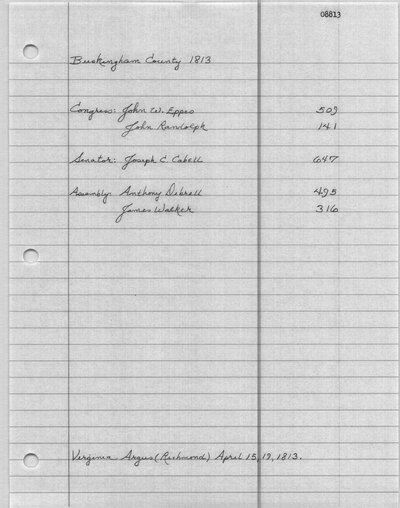 08813
Buckingham County 1813
Congress: John W. Eppes 509
John Randolph 141
Senator: Joseph C Cabell 647
Assembly: Anthony Dibrell 495
James Walker 316
Virginia Argus (Richmond) April 15, 19, 1813.